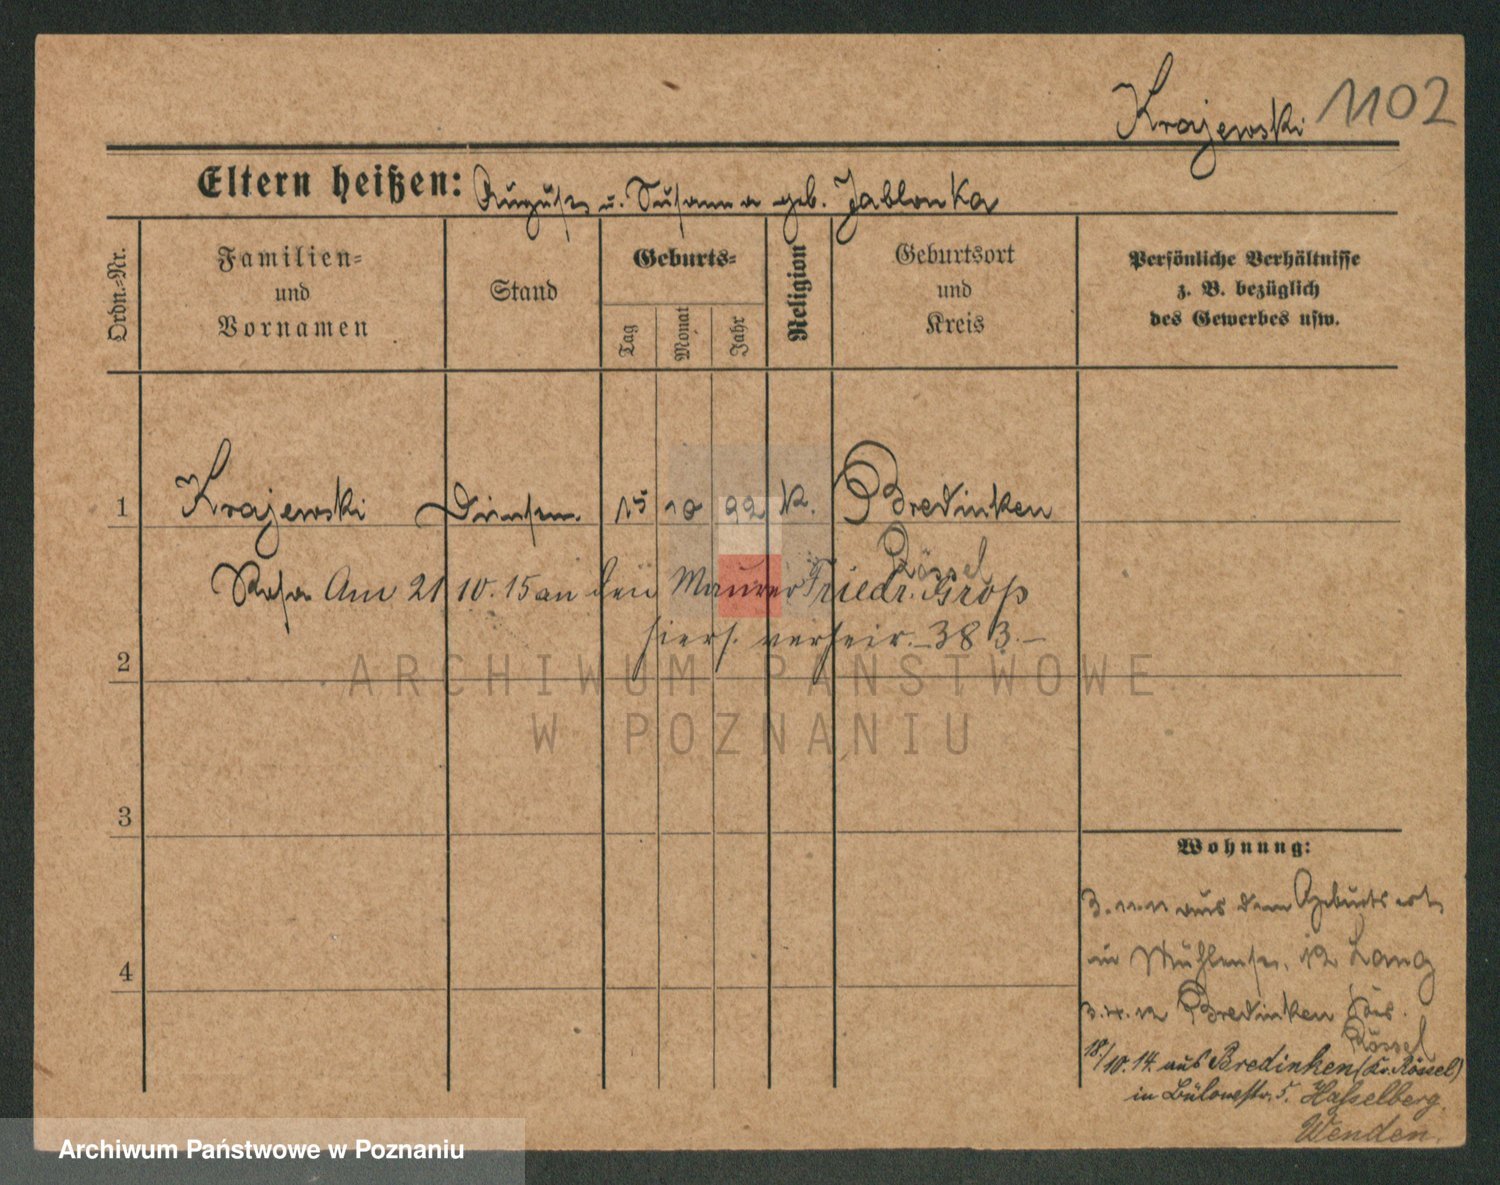 Krajewski 1102
Eltern heißen: August u. Susanna geb. Jablonka
Ordn.-Nr.
Familien-
und
Vornamen
Stand
Geburts-
Tag
Monat
Jahr
Religion
Geburtsort
und
Kreis
Persönliche Verhältnisse
z. B. bezüglich
des Gewerbes usw.
1 Krajewski 15 10 92 K. Bredinken
Rössel
Rosa Am 21.10.15 an den Maurer Friedr. Groß
hiers. verheir. 383.
2
ARCHIWUM PAŃSTWOWE
W POZNANIU
3
Wohnung:
3. 11. 11 aus dem Geburtsort
in Mühlenstr. 12 Lang
4
Bredinken Krs.
Rössel
18/10.14. aus Bredinken (Kr. Rössel)
in Bülowstr. 5. Hasselberg.
Wenden.
Archiwum Państwowe w Poznaniu